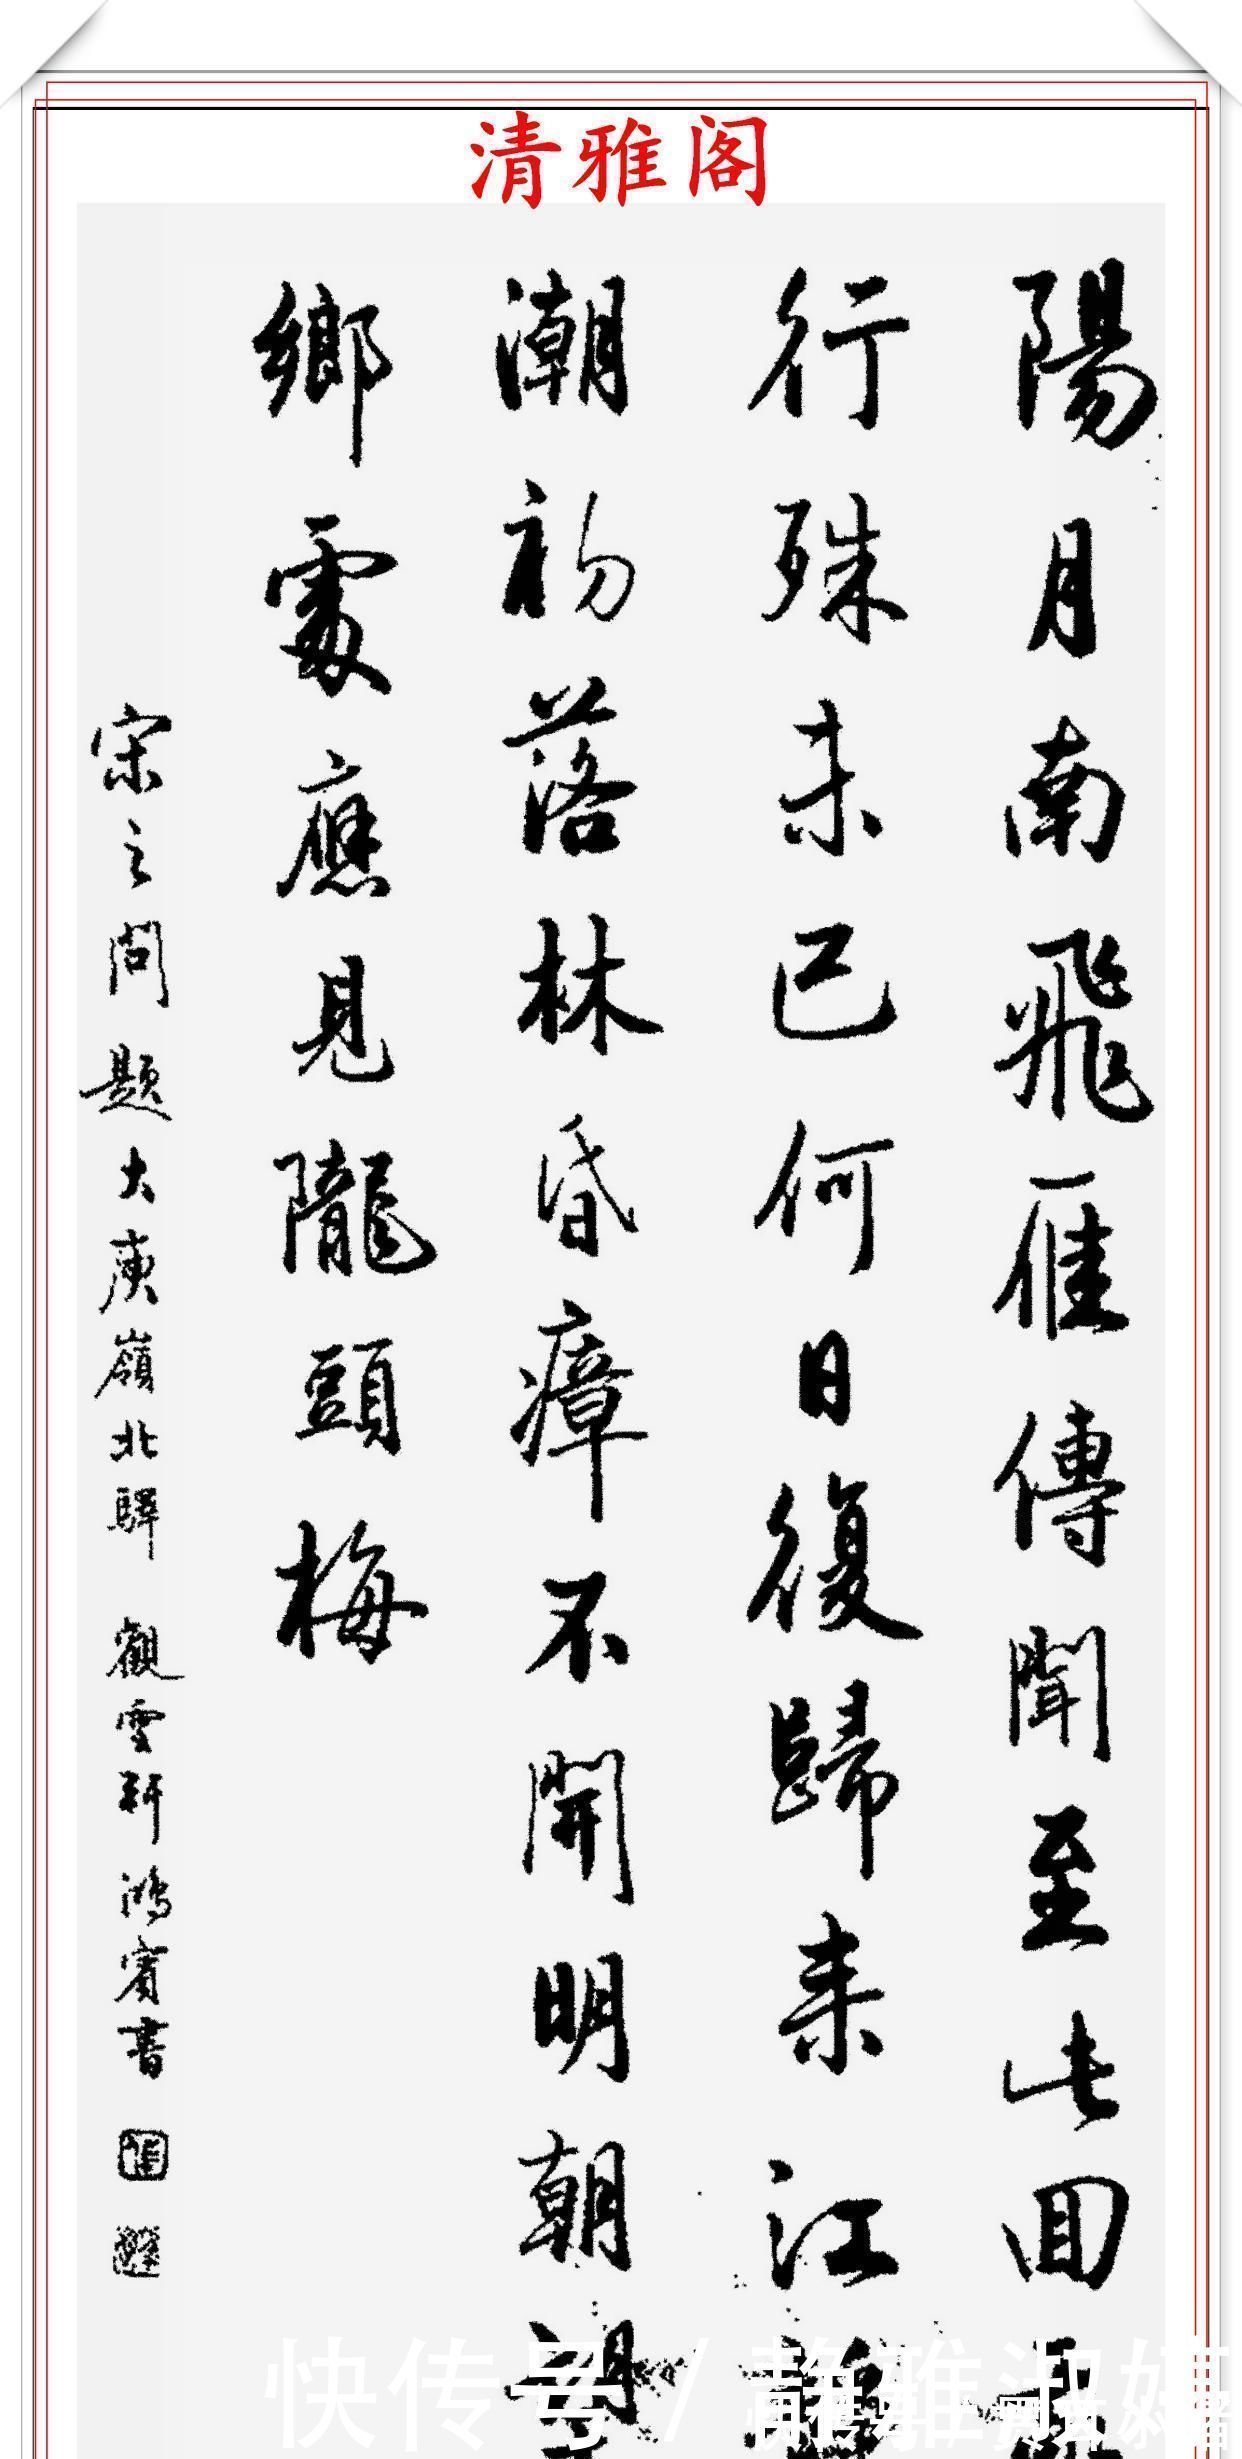 清雅阁
陽月南飛雁傳聞至此回我
行殊未已何日復歸来江靜
潮初落林昏瘴不開明朝望
鄉處應見隴頭梅
宋之問題大庾嶺北驛 觀雲軒鴻賓書
快传号/静雅淑嫣